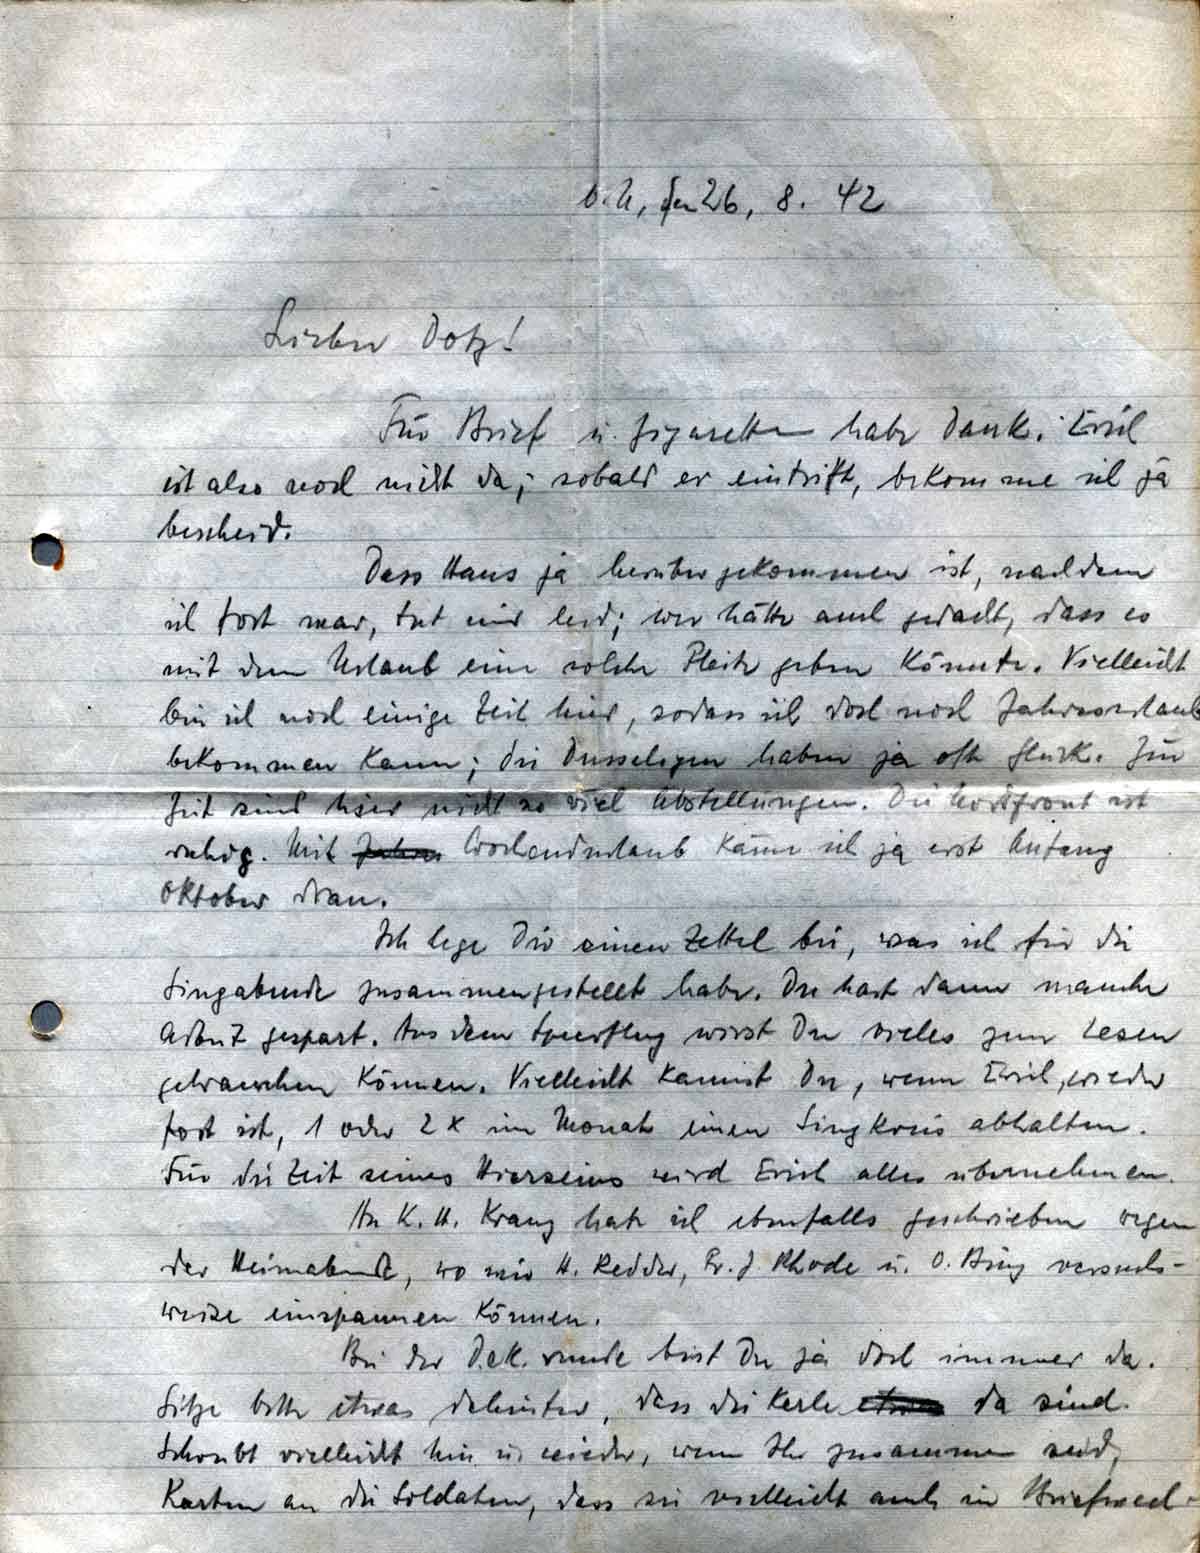 O.U., den 26. 8. 42
Lieber Dotz!
Für Brief u. Zigaretten habe Dank. Erich
ist also noch nicht da; sobald er eintrifft, bekomme ich ja
bescheid.
Dass Hans ja herübergekommen ist, nachdem
ich fort war, tut mir leid; wer hätte auch gedacht, dass es
mit dem Urlaub eine solche Pleite geben könnte. Vielleicht
bin ich noch einige Zeit hier, sodass ich doch noch Jahresurlaub
bekommen kann; die Dusseligen haben ja oft Glück. Zur
Zeit sind hier nicht so viel Abstellungen. Die Nordfront ist
ruhig. Mit Wochenendurlaub kann ich ja erst Anfang
Oktober dran.
Ich lege Dir einen Zettel bei, was ich für die
Singabende zusammengestellt habe. Du hast dann manche
Arbeit gespart. Aus dem wirst Du vieles zum Lesen
gebrauchen können. Vielleicht kannst Du, wenn Erich wieder
fort ist, 1 oder 2 x im Monat einen Singkreis abhalten.
Für die Zeit seines Hierseins wird Erich alles übernehmen.
An K. H. Kranz habe ich ebenfalls geschrieben wegen
der Heimabende, wo wir H. Redder, Fr. J. Rhode u. O. Bing versuchs-
weise einspannen können.
Bei der runde bist Du ja doch immer da.
Sitze bitte etwas dahinter, dass die Kerle da sind.
Schreibt vielleicht hin u. wieder, wenn Ihr zusammen seid,
Karten an die Soldaten, dass sie vielleicht auch in Briefwech-